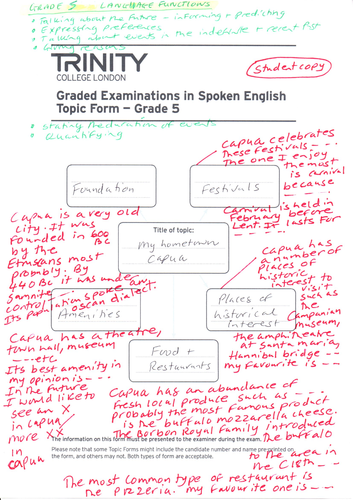 GRADE 5 LANGUAGE FUNCTIONS
• Talking about the future - informing + predicting
• Expressing preferences
• Talking about events in the indefinite + recent past
• Giving reasons
TRINITY
COLLEGE LONDON
Student copy
Graded Examinations in Spoken English
Topic Form – Grade 5
• Stating the duration of events
• Quantifying
Capua celebrates
these festivals - - -
The one I enjoy
the most
is carnival
because
- - - -
Carnival is held in
February before
Lent. It lasts for
- - -
Foundation
Festivals
Title of topic:
my hometown
Capua
Capua is a very old
city. It was
founded in 600
BC
by the
Etruscans most
probably. By
440 BC it was under
Samnite
control
Its population spoke an
oscan dialect.
Capua has
a number of
places of
historic
interest to
visit
such as
the
Campanian
museum,
the amphitheatre
at Santa maria,
Hannibal bridge - -
my favourite is - - -
Amenities
Places of
historical
Interest
Food +
Restaurants
Capua has a theatre,
town hall, museum
- - - etc
Its best amenity in
my opinion is - - -
In the future
I would like to
see an X
in Capua/
more XX
in
Capua
Capua has an abundance of
fresh local produce such as - - -
probably the most famous product
is the buffalo mozzarella cheese.
The Borbon Royal family introduced
the buffalo
to the area
in the C18th - -
The information on this form must be presented to the examiner during the exam.
Please note that some Topic Forms might include the candidate number and name preprinted on
the form, and others may not. Both types of form are acceptable.
The most common type of restaurant is
the pizzeria. my favourite one is - - -